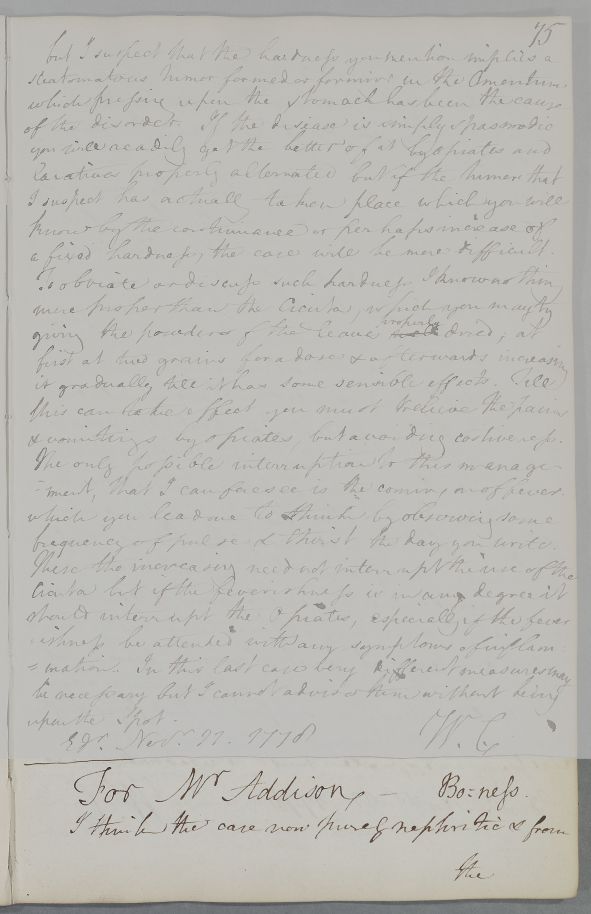 75
but I suspect that the hardness you mention implies a
steatomatous tumor formed or forming in the Omentum
which pressing upon the stomach has been the cause
of the disorder. If the disease is simply spasmodic
you will readily get the better of it by opiates and
Laxatives properly alternated but if the tumor that
I suspect has actually taken place which you will
know by the continuance or perhaps increase of
a fixed hardness, the case will be more difficult.
To obviate or discuss such hardness I know nothing
more proper than the Cicuta, which you may try
giving the powders of the leaves properly dried, at
first at two grains for a dose & afterwards increasing
it gradually till it has some sensible effects. Till
this can take effect you must relieve the pains
& vomitings by opiates, but avoiding costiveness.
The only possible interruption to this manage-
-ment, that I can foresee is the coming on of fever
which you lead me to think by observing some
frequency of pulse & thirst the day you write.
These the increasing need not interrupt the use of the
Cicuta but if the feverishness is in any degree it
should interrupt the Opiates, especially if the fever
ishness be attended with any symptoms of inflam-
=mation. In this last case very different measures may
be necessary but I cannot advise them without being
upon the Spot.
Edr. Novr. 1778 W. C.
For Mr Addison, - Bo=ness.
I think the case now purely nephritic & from
the